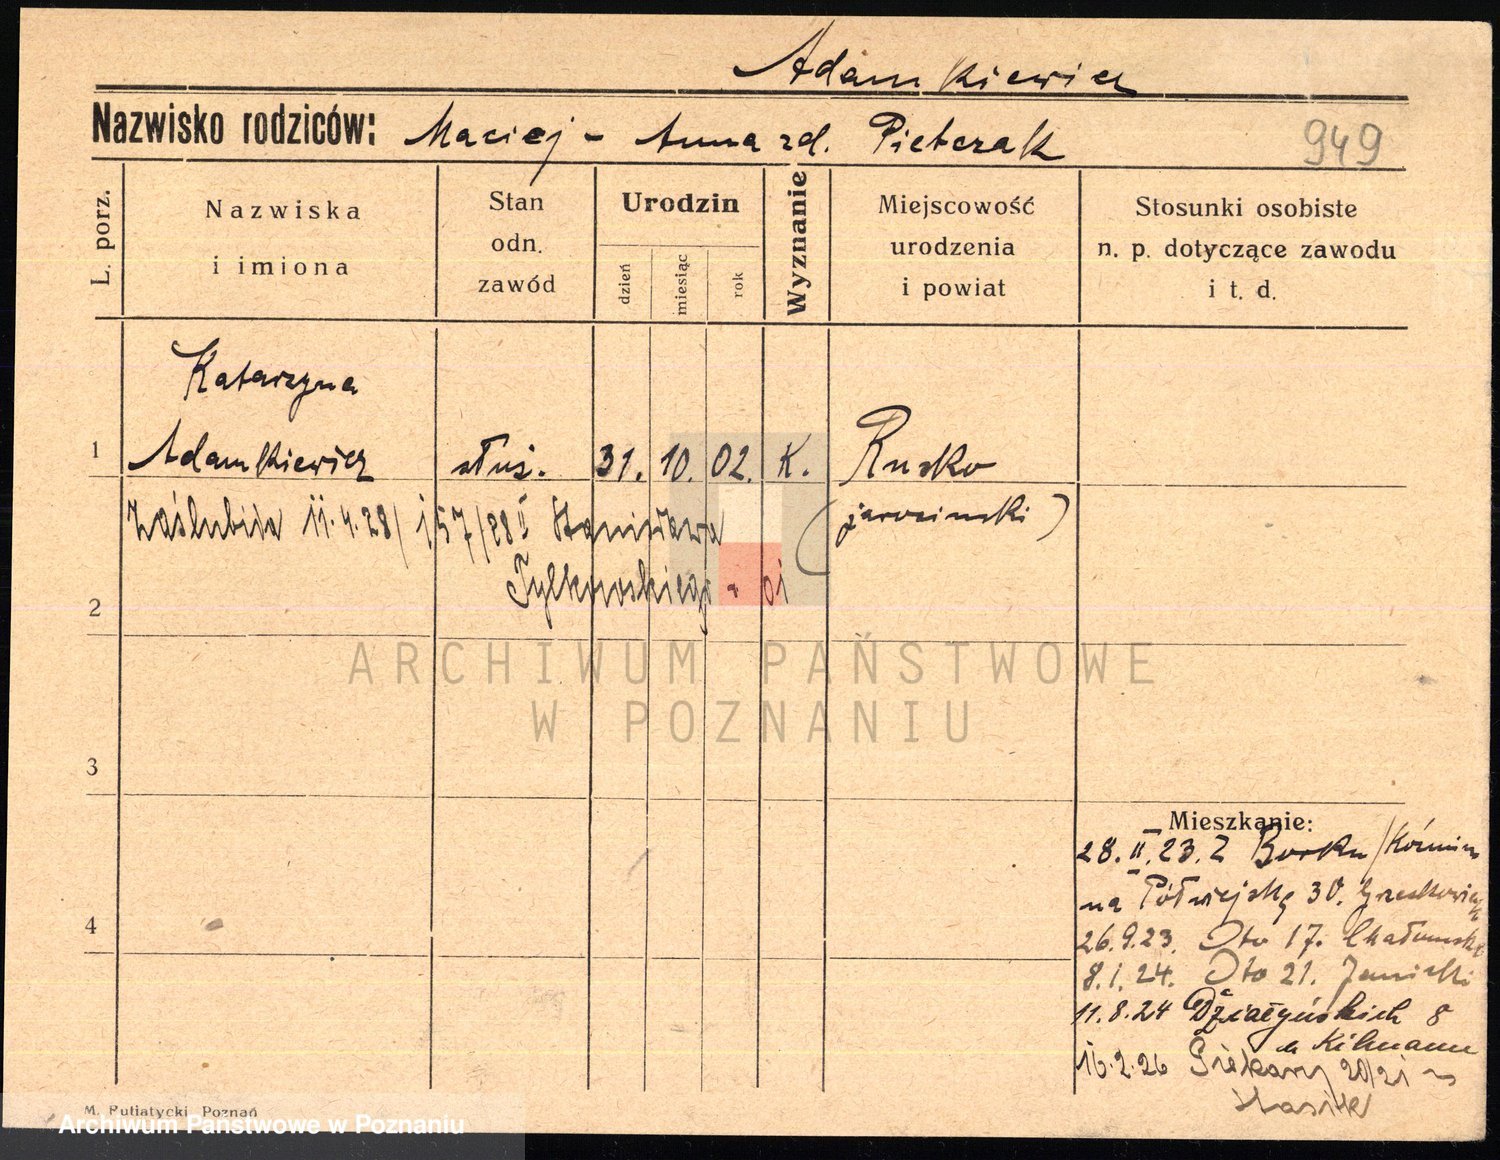 Adamkiewicz
Nazwisko rodziców: Maciej - Anna zd. Pietrzak 949
L. porz.
Nazwiska
i imiona
Stan
odn.
zawód
Urodzin
dzień
miesiąc
rok
Wyznanie
Miejscowość
urodzenia
i powiat
Stosunki osobiste
n. p. dotyczące zawodu
i t. d.
Katarzyna
1 Adamkiewicz służ. 31. 10. 02. K. Rusko
zaślubiła 11.4.28/ j 57/28 II Stanisława (jarocinski)
Tylkowskiego
2
3
4
ARCHIWUM PAŃSTWOWE
W POZNANIU
Mieszkanie:
28. II. 23. Z Borku /Koźmin
na Półwiejską 30.
26.9.23. Oto 17.
8.1.24. Oto 21.
11.8.24 Działyńskich 8
16.2.26 Piekary 20/21
M. Putiatycki, Poznań
Archiwum Państwowe w Poznaniu